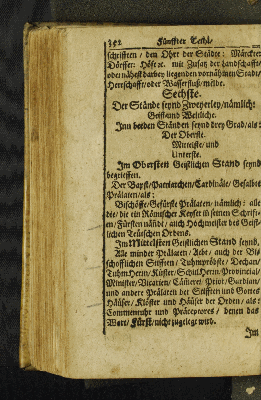 352 Fünffter Theil/
schrifften / den Ohrt der Städte: Märckte:
Dörffer: Höfe ꝛc. mit Zusatz der Landschafft/
oder nähest darbey liegenden vornähmen Stadt/
Herrschafft/ oder Wasserfluß/ melde.
Sechste.
Der Stände seynd Zweyerley/nämlich:
Geist und Weltliche.
Jnn beeden Ständen seynd drey Grad/als:
Der Oberste.
Mittelste/und
Unterste.
Jm Obersten Geistlichen Stand seynd
begriffen.
Der Bapst/Patriarchen/Cardinäle/ Gefaltes
Prälaten/als:
Bischöffe/Gefürste Prälaten/ nämlich: alle
die/ die ein Römischer Keyser in seinen Schrifft-
en/Fürsten nändt/ auch Hochmeister des Geist-
lichen Teutschen Ordens.
Jm Mittelsten Geistlichen Stand seynd/
Alle minder Prälaten/ Aebt/ auch der Bi-
schofflichen Stifften/ Tuhmpröbste/ Dechan/
Tuhm Herrn/ Küster/ Schul Herrn/Provincial/
Minister/Vicarien/ Priot/Gardian/
und andere Prälaten der Stifften und Gottes
Häuser/ Klöster und Häuser der Orden / als:
Commenthur und Präceptores / denen das
Wort/ Fürst/ nicht zugelegt wird.
Jm